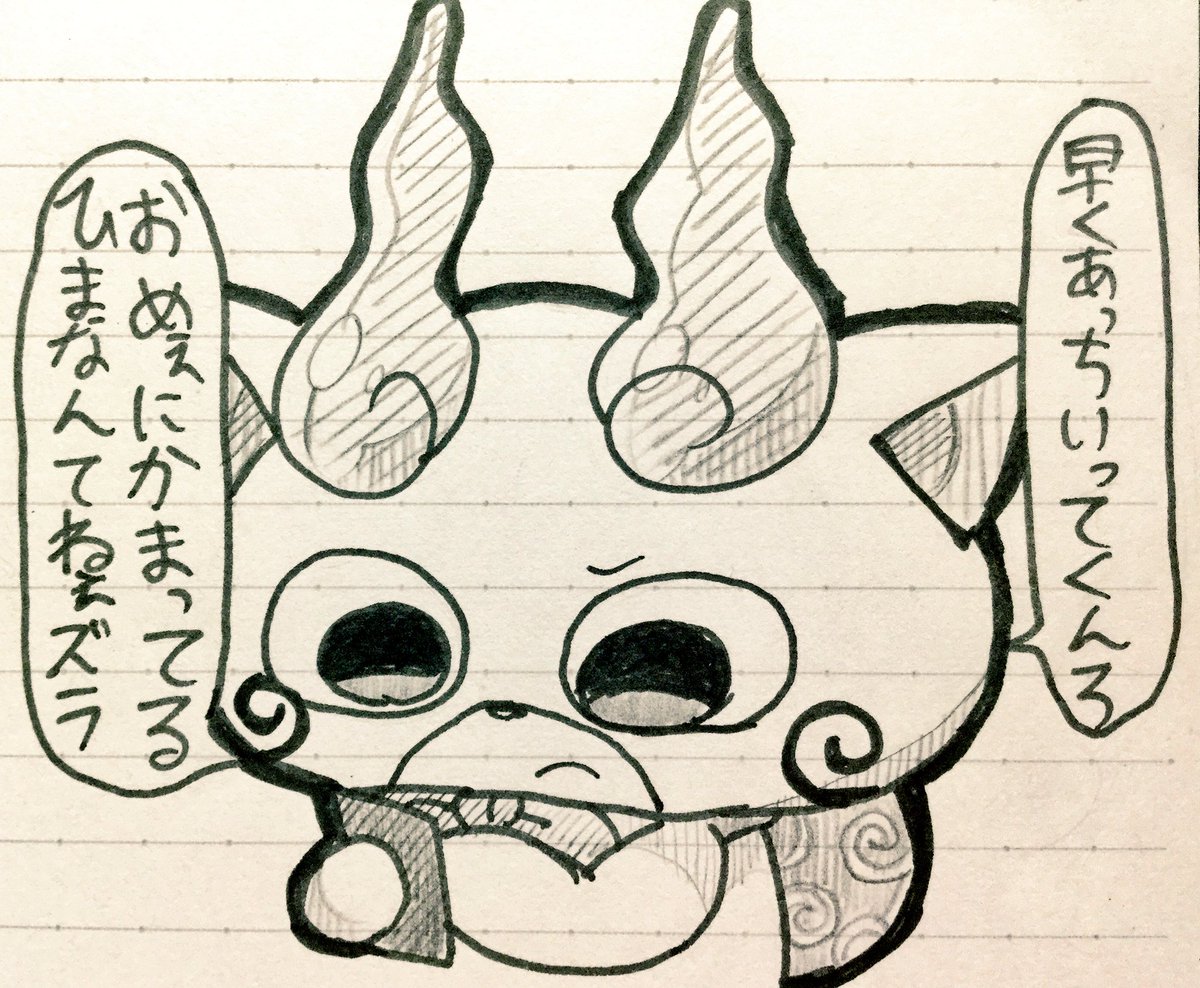 早くあっちいってくんろ
おめぇにかまってる
ひまなんてねぇズラ